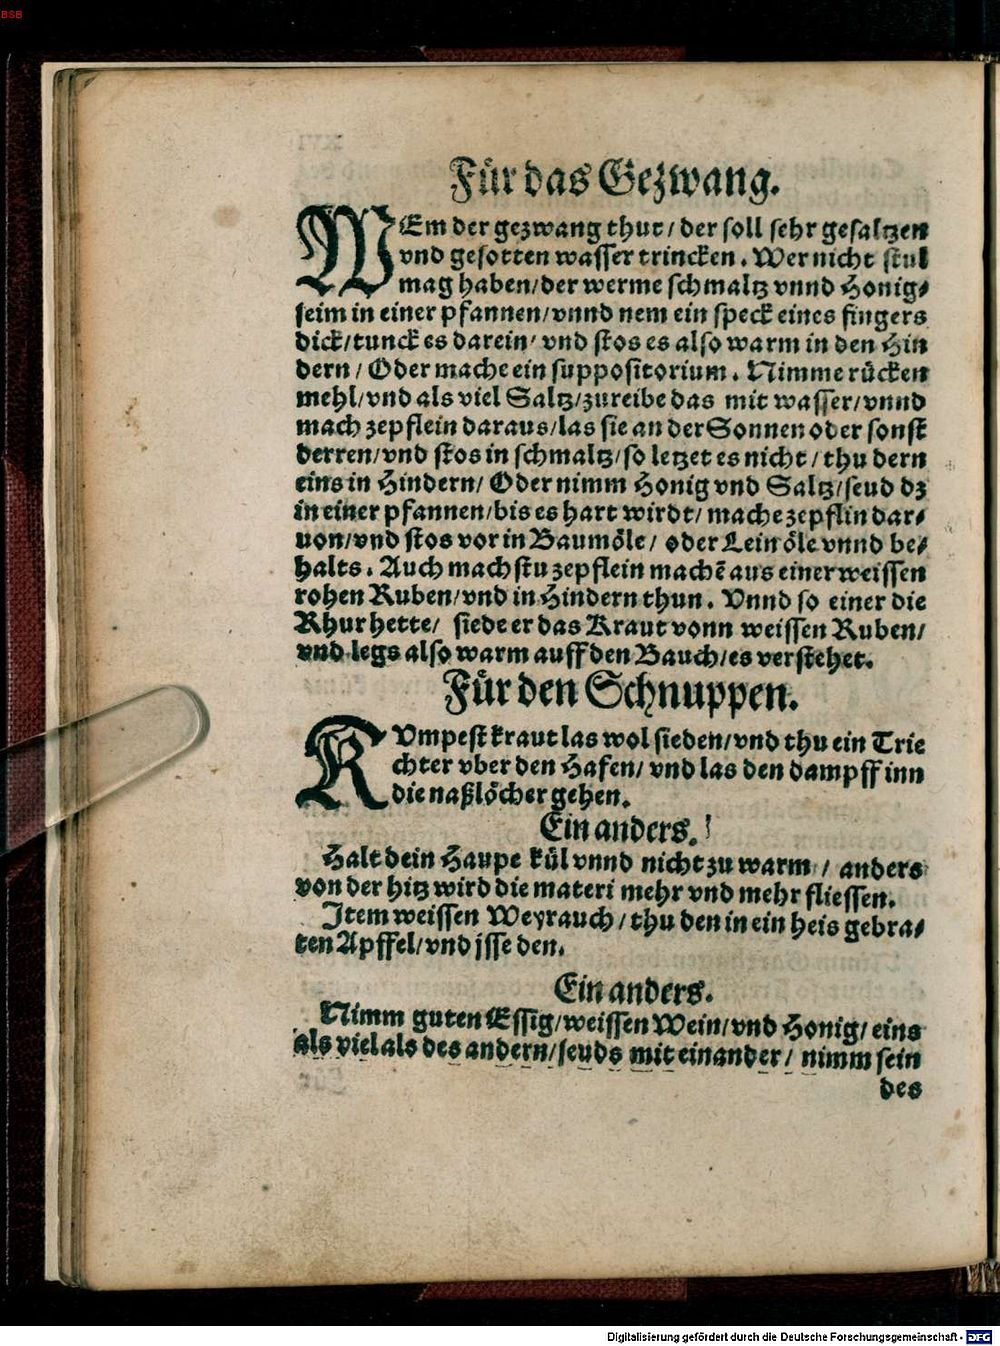 BSB
Für das Gezwang.
WEm der gezwang thut/ der soll sehr gesaltzen
vnd gesotten wasser trincken. Wer nicht stul
mag haben/der werme schmaltz vnnd Honig⸗
seim in einer pfannen/vnnd nem ein speck eines fingers
dick/tunck es darein/ vnd stos es also warm in den Hin
dern / Oder mache ein suppositorium. Nimme rücken
mehl/vnd als viel Saltz/zureibe das mit wasser/vnnd
mach zepflein daraus/las sie an der Sonnen oder sonst
derren/vnd stos in schmaltz/so letzet es nicht/thu dern
eins in Hindern/ Oder nimm Honig vnd Saltz/seud dz
in einer pfannen/bis es hart wirdt/ mache zepflin dar⸗
uon/vnd stos vor in Baumöle/ oder Lein öle vnnd be⸗
halts. Auch machstu zepflein machē aus einer weissen
rohen Ruben/vnd in Hindern thun. Vnnd so einer die
Rhur hette/ siede er das Kraut vonn weissen Ruben/
vnd legs also warm auff den Bauch/es verstehet.
Für den Schnuppen.
KVmpest kraut las wol sieden/vnd thu ein Trie
chter vber den Hafen/ vnd las den dampff inn
die naßlöcher gehen.
Ein anders.
Halt dein Haupt kül vnnd nicht zu warm / anders
von der hitz wird die materi mehr vnd mehr fliessen.
Item weissen Weyrauch/thu den in ein heis gebra⸗
ten Apffel/vnd jsse den.
Ein anders.
Nimm guten Essig/weissen Wein/vnd Honig/eins
als viel als des andern/seuds mit einander/ nimm sein
des
Digitalisierung gefördert durch die Deutsche Forschungsgemeinschaft - DFG